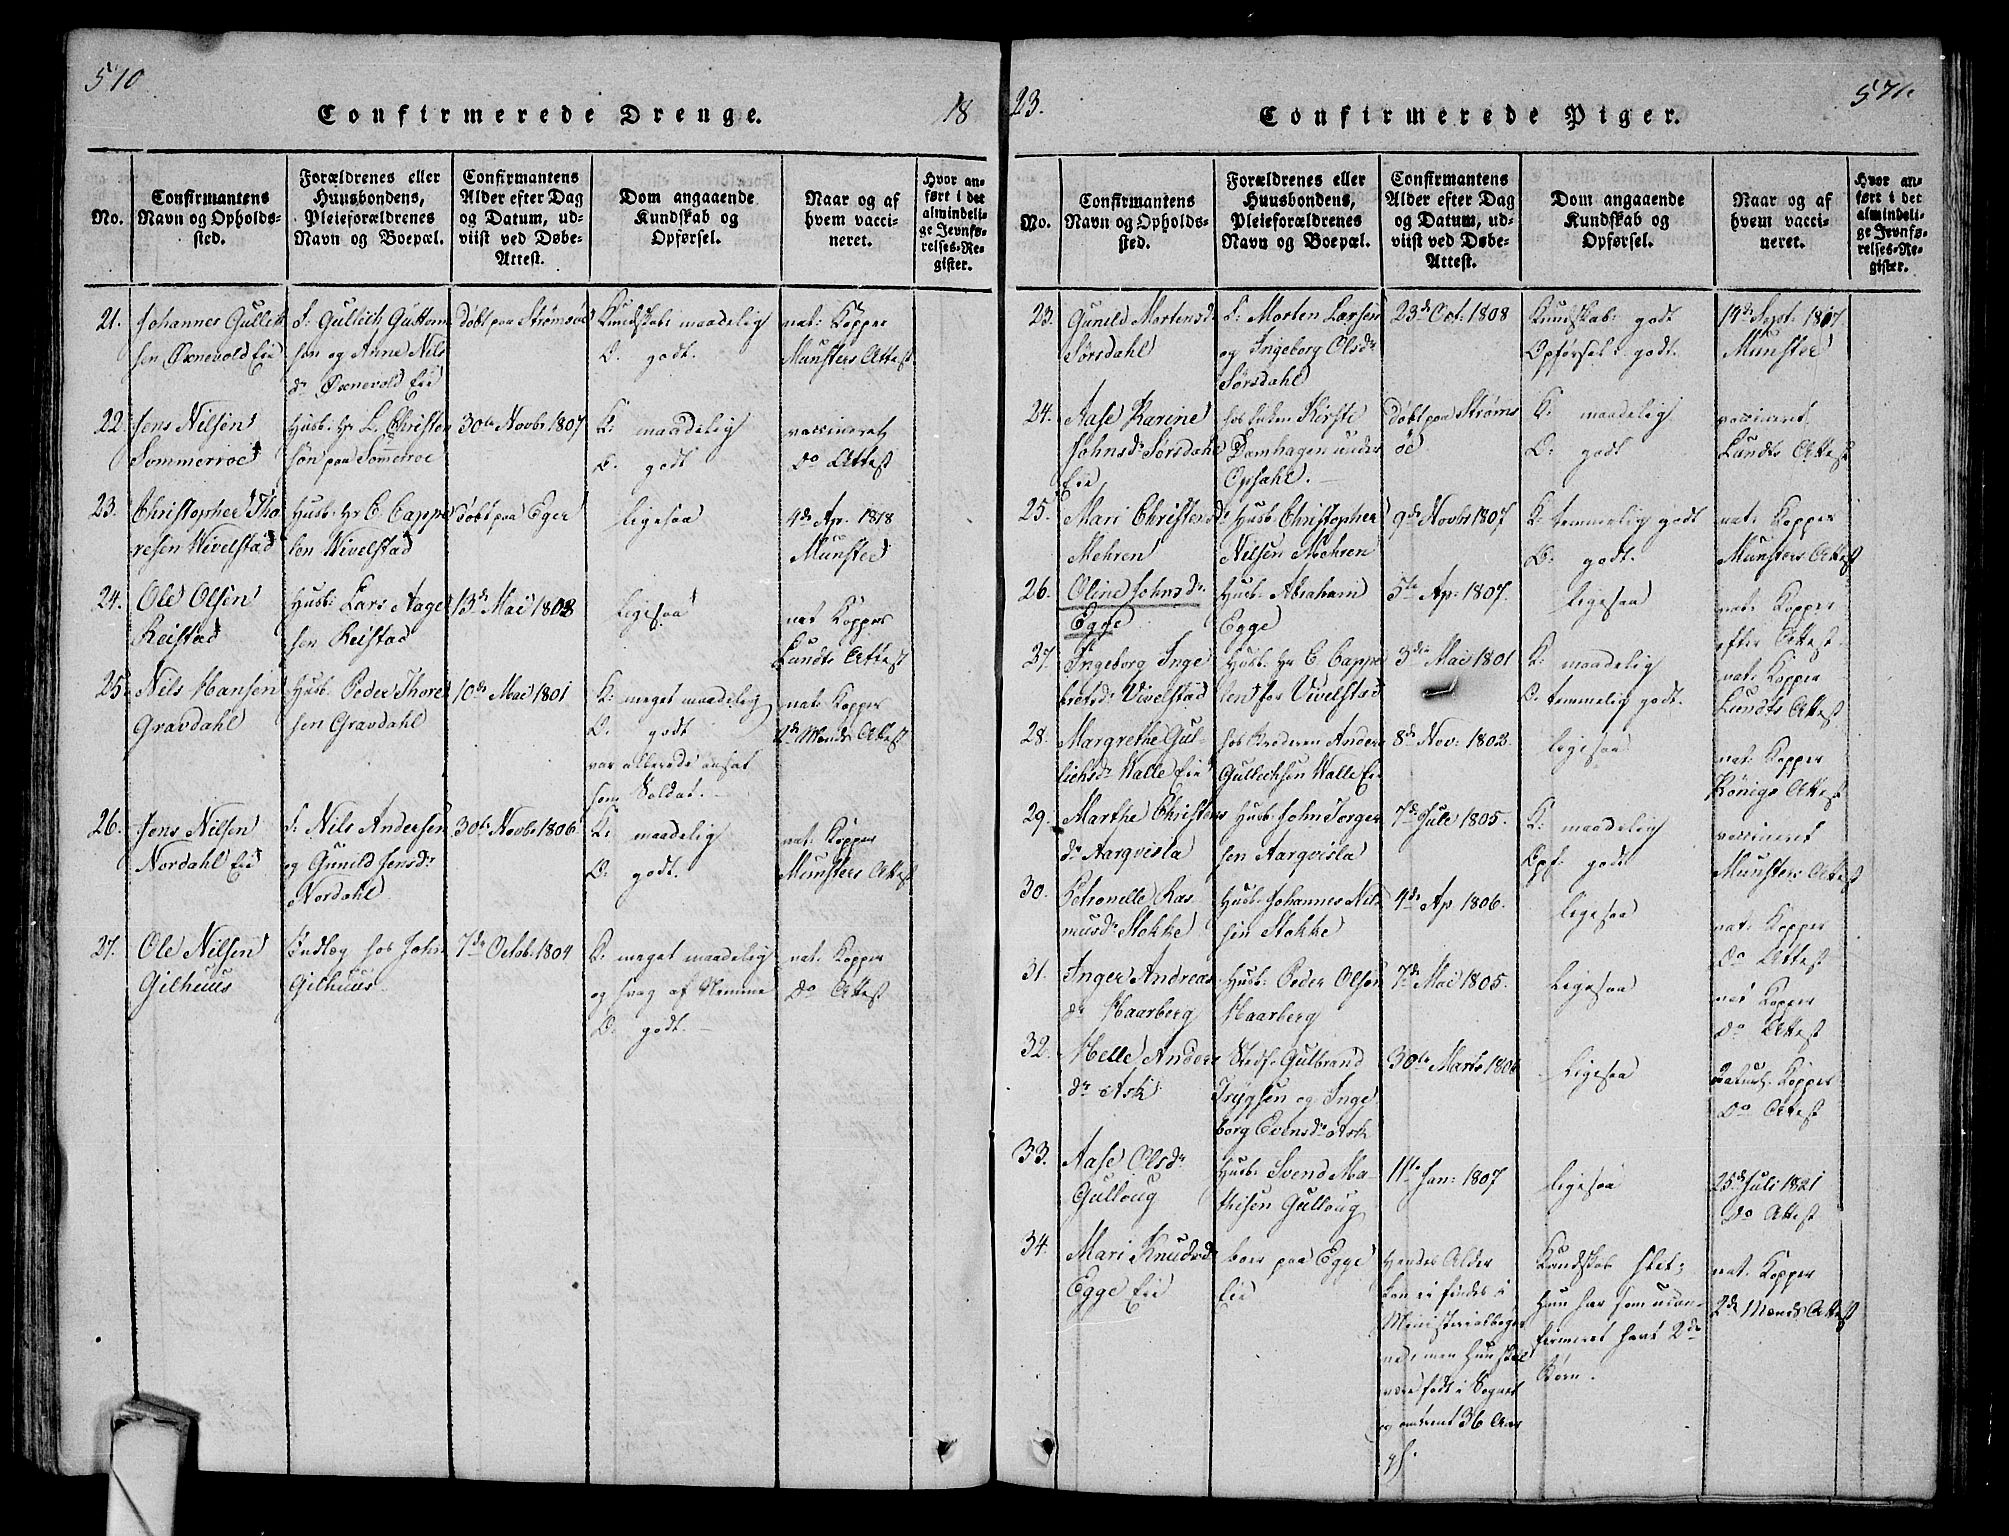 510
Confirmerede Drenge.
18
No.
Confirmantens
Navn og Opholds-
sted.
Forældrenes eller
Huusbondens,
Pleieforældrenes
Navn og Boepæl.
Confirmantens
Alder efter Dag
og Datum, ud-
viist ved Døbe-
Attest.
Dom angaaende
Kundskab og
Opførsel.
Naar og af
hvem vacci-
neret.
Hvor an-
ført i det
almindeli-
ge Jevnfø-
relses-Re-
gister.
21.
Johannes Gullich
sen Øxnevold Eie
F. Gullich Guttorm
sen og Anne Nils
dr Øxnevold Eie
Døbt paa Strømsøe
Kundskab: maadelig
O. godt.
nat: Kopper
Munsters Attest
22.
Jens Nilsen
Sommerroe
Husb: Hr L. Christen
sön paa Sommeroe
30te Novbr 1807
K: maadelig
O. godt
vaccineret
Do Attest
23.
Christopher Tho
resen Wivelstad
Husb: Hr C. Cappe
len Wivelstad
Døbt paa Eger
ligesaa
4de Ap. 1818
Münster
24.
Ole Olsen
Reistad
Husb: Lars Aage
sen Reistad
13de Mai 1803
Ligesaa
nat Kopper
Lundts Attest
25.
Nils Hansen
Gravdahl
Husb: Peder Thore
sen Gravdahl
10de Mai 1801
K: meget maadelig
O. godt
var allerede ansat
som Soldat.
nat: Kopper
2de Mænds Attest
26.
Jens Nilsen
Nordahl Eie
F: Nils Andersen
og Gunild Jensdr
Nordahl
30te Novbr 1806
K: maadelig
O. godt.
nat: Kopper
Munsters Attest
27.
Ole Nilsen
Gilhuus
Indlæg hos John
Gilhuus.
7de Octob. 1804
K: meget maadelig
og svag af Nemme
O. godt.
nat: Kopper
Do Attest
23.
571.
Confirmerede Piger.
No.
Confirmantens
Navn og Opholds-
sted.
Forældrenes eller
Huusbondens,
Pleieforældrenes
Navn og Boepæl.
Confirmantens
Alder efter Dag
og Datum, ud-
viist ved Døbe-
Attest.
Dom angaaende
Kundskab og
Opførsel.
Naar og af
hvem vacci-
neret.
Hvor an-
ført i det
almindeli-
ge Jevnfø-
relses-Re-
gister.
23.
Gunild Mortensdr
Sørsdahl
F: Morten Larsen
og Ingeborg Olsdr
Sørsdahl
23de Oct: 1808
Kundskab: godt
Opførsel: godt.
14de Sept: 1817
Münster
24.
Aase Karine
Johnsdr Sørsdahl
Eie
hos Enken Kirste
Damhagen under
Opsahl.
Døbt paa Strøms
öe
K: maadelig
O: godt
vaccineret
Lundts Attest
25.
Mari Christensdr
Mehren
Husb: Christopher
Nilsen Mehren
9de Novbr 1807
K: temmelig godt
O: godt.
nat: Kopper
Munsters Attest
26.
Oline Johnsdr
Egge
Husb: Abraham
Egge
5te Ap: 1807.
ligesaa
nat: Kopper
efter Attest
27.
Ingeborg Inge
bretsdr Vivelstad
Husb: Hr C. Cappe
len for Vivelstad
3die Mai 1801
K: maadelig
O. temmelig godt.
nat: Kopper
Lundts Attest
28.
Margrethe Gul-
lichsdr Walle Eie
hos Broderen Anders
Gullichsen Walle Eie
8de Nov: 1802.
ligesaa
nat: Kopper
Königs Attest
29.
Marthe Christens
dr Aarqvisla
Husb: John Torger
sen Aarqvisla
7de Jule 1805.
K: maadelig
Opf: godt
vaccineret
Munsters Attest
30.
Petronelle Ras
musdr Stokke
Husb: Johannes Nils
sen Stokke
4de Ap 1806.
ligesaa
nat: Kopper
Do Attest
31.
Inger Andreas
dr Haarberg
Husb: Peder Olsen
Haarberg
7de Mai 1805.
Ligesaa
nat Kopper
Do Attest
32.
Helle Anders
dr Ask
Stedf: Gulbrand
Trygsen og Inge
borg Evensdr Ask
30te Marts 1806
Ligesaa
naturl. Kopper
Do Attest
33.
Aase Olsdr
Gulloug
Husb: Svend Ma-
thisen Gulloug
11te Jan: 1807
ligesaa
25de Juli 1821
Do Attest
34.
Mari Knudsdr
Egge Eie
boer paa Egge
Eie
Hendes Alder
kan ei findes i
Ministerialbøger
ne, men hun skal
være født i Sognet
og omtrent 36 Aar
gl.
Kundskab slet;
Hun har som ucon-
firmeret havt 2de
Børn.
nat. Kopper
2de Mænds Attest